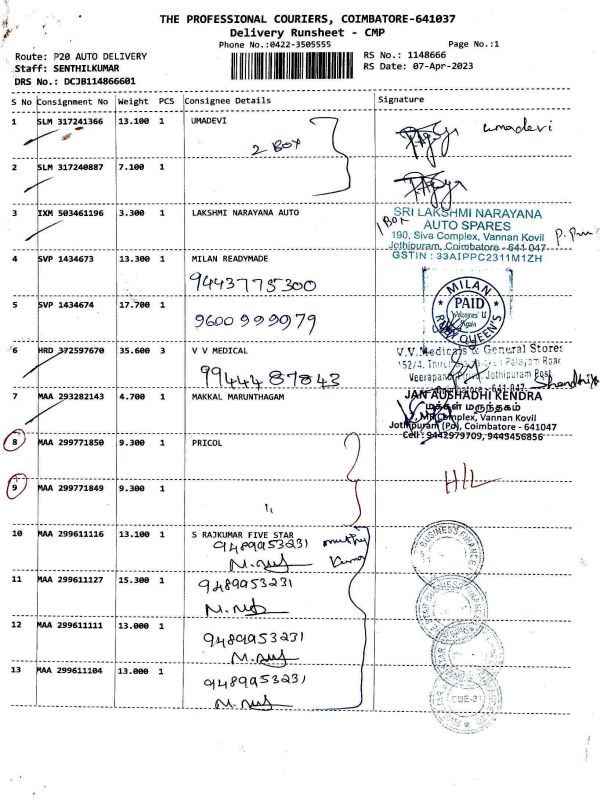 THE PROFESSIONAL COURIERS, COIMBATORE-641037
Delivery Runsheet - CMP
Phone No.:0422-3505555 Page No.:1
Route: P20 AUTO DELIVERY RS No.: 1148666
Staff: SENTHILKUMAR RS Date: 07-Apr-2023
DRS No.: DCJB114866601
S No Consignment No Weight PCS Consignee Details Signature
1 SLM 317241366 13.100 1 UMADEVI
umadevi
2 BOX
2 SLM 317240887 7.100 1
3 IXM 503461196 3.300 1 LAKSHMI NARAYANA AUTO
1 BOX
SRI LAKSHMI NARAYANA
AUTO SPARES
190, Siva Complex, Vannan Kovil
Jothipuram, Coimbatore - 641 047
GSTIN : 33AIPPC2311M1ZH
4 SVP 1434673 13.300 1 MILAN READYMADE
9443775300
MILAN
PAID
Welcomes U
Again
QUEEN'S
5 SVP 1434674 17.700 1
9600999079
6 HRD 372597670 35.600 3 V V MEDICAL
9944487843
V.V.Medicals & General Stores
152/4,
Jothipuram Post
641-047
7 MAA 293282143 4.700 1 MAKKAL MARUNTHAGAM
JAN AUSHADHI KENDRA
மக்கள் மருந்தகம்
Complex, Vannan Kovil
Jothipuram (Po), Coimbatore - 641047
Cell : 9442979709, 9445456856
8 MAA 299771850 9.300 1 PRICOL
H/L
9 MAA 299771849 9.300 1
10 MAA 299611116 13.100 1 S RAJKUMAR FIVE STAR
9489953231
muthu
Kumar
BUSINESS FINANCE
11 MAA 299611127 15.300 1
9489953231
12 MAA 299611111 13.000 1
9489953231
13 MAA 299611104 13.000 1
9489953231